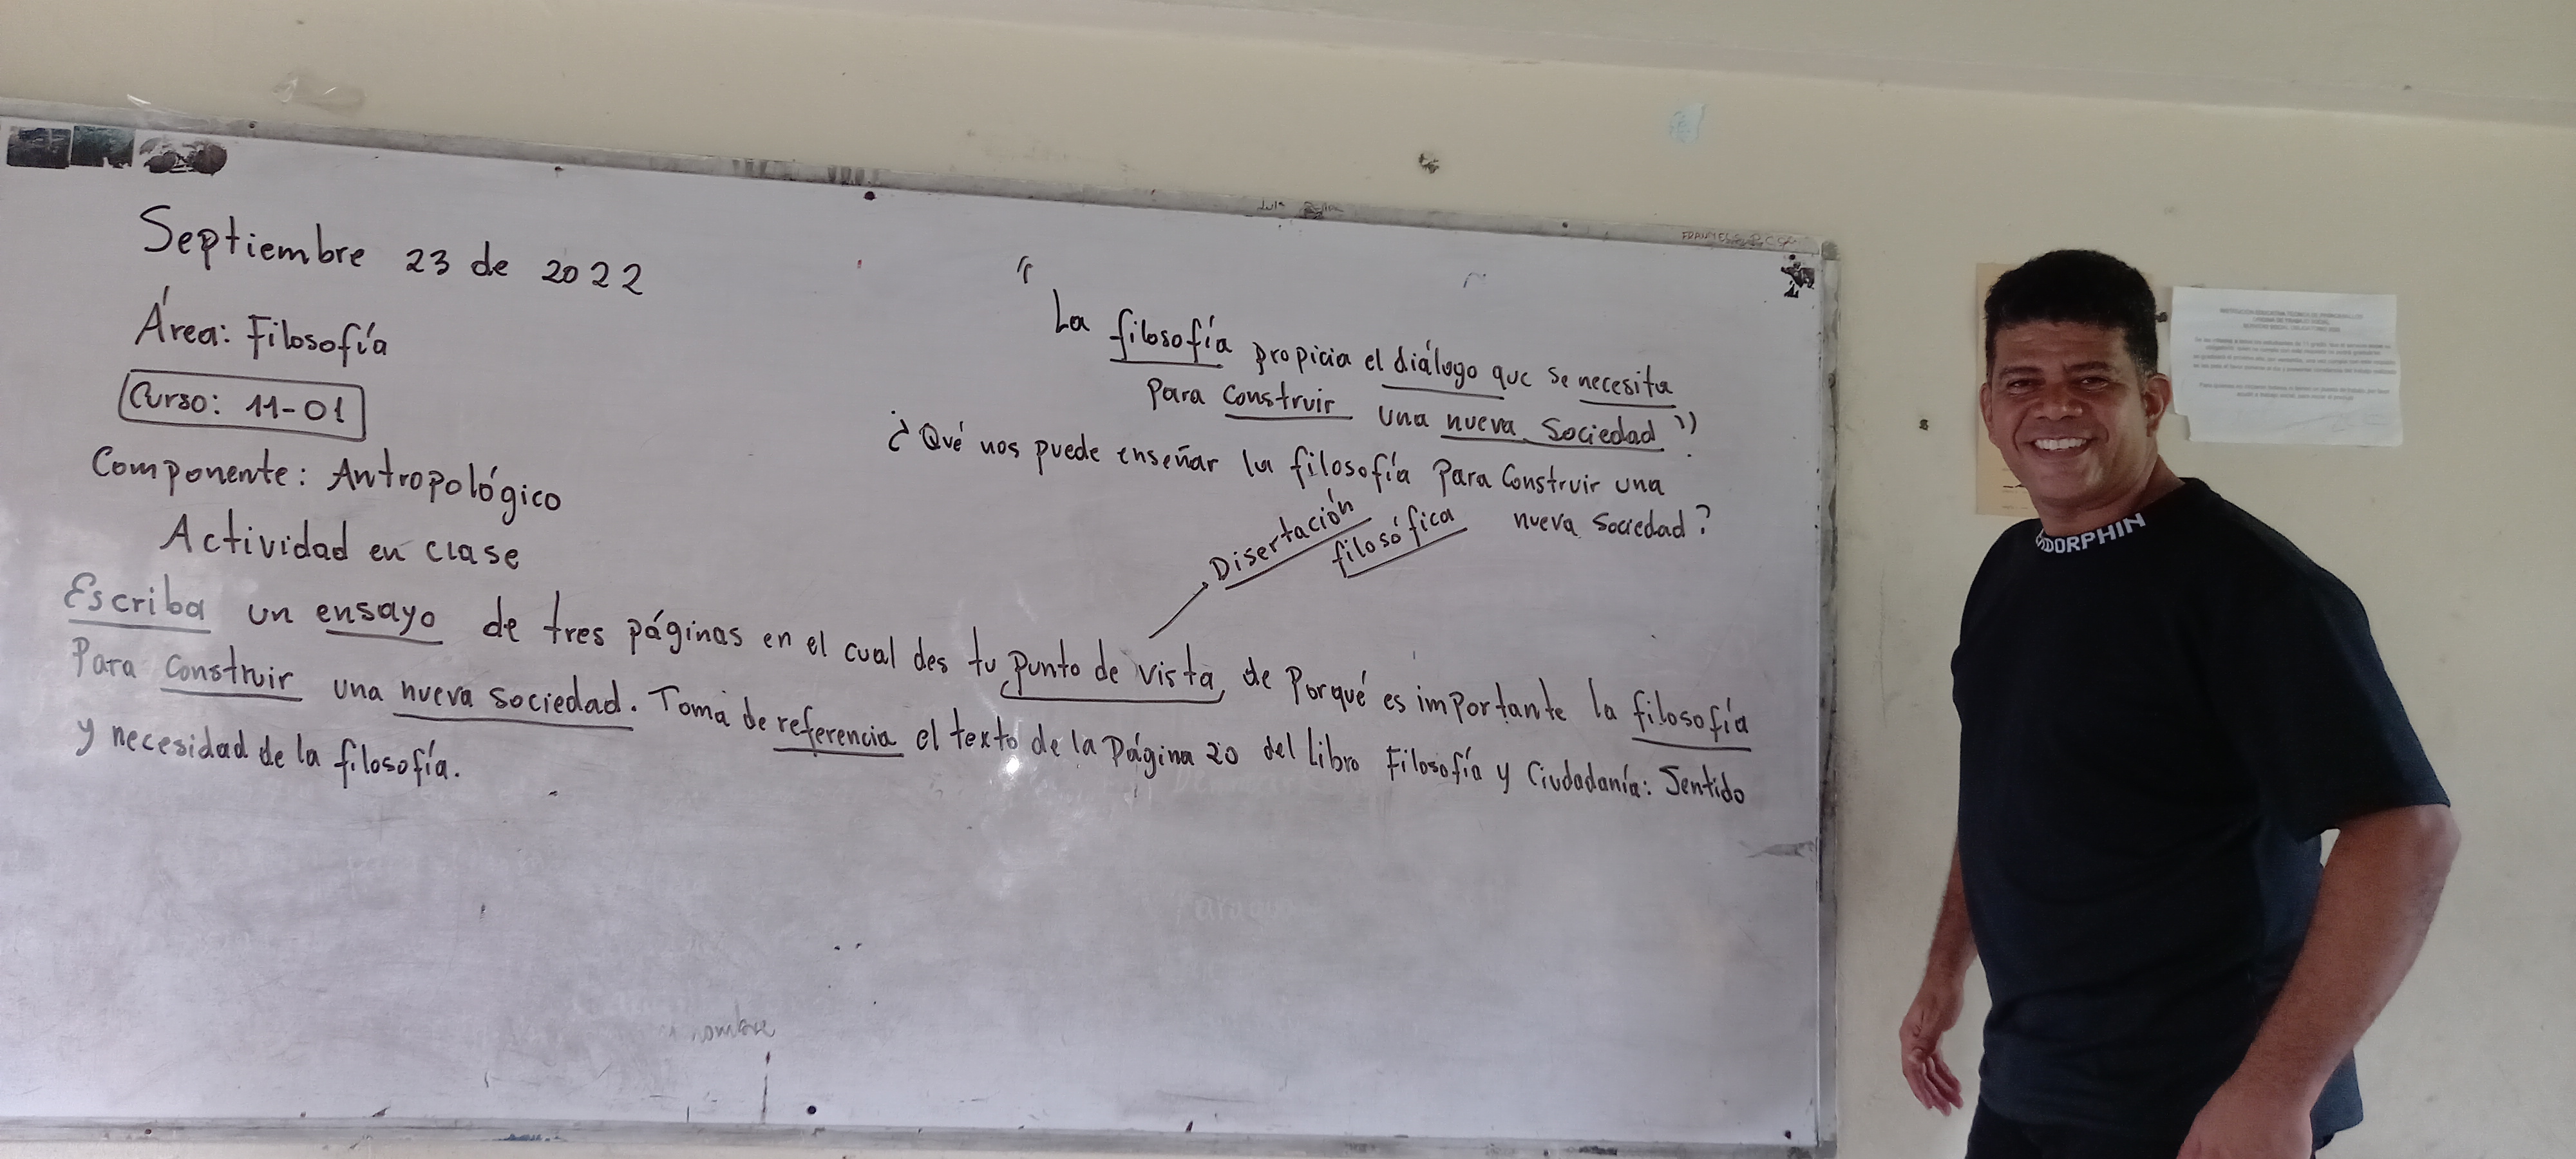 Septiembre 23 de 2022
Área: Filosofía
Curso: 11-01
Componente: Antropológico
Actividad en clase
"La filosofía propicia el diálogo que se necesita
para construir una nueva sociedad"
¿Qué nos puede enseñar la filosofía para construir una
nueva sociedad?
Disertación
filosófica
Escriba un ensayo de tres páginas en el cual des tu punto de vista, de porqué es importante la filosofía
para construir una nueva sociedad. Toma de referencia el texto de la página 20 del libro Filosofía y Ciudadanía: Sentido
y necesidad de la filosofía.
nombre
DORPHIN